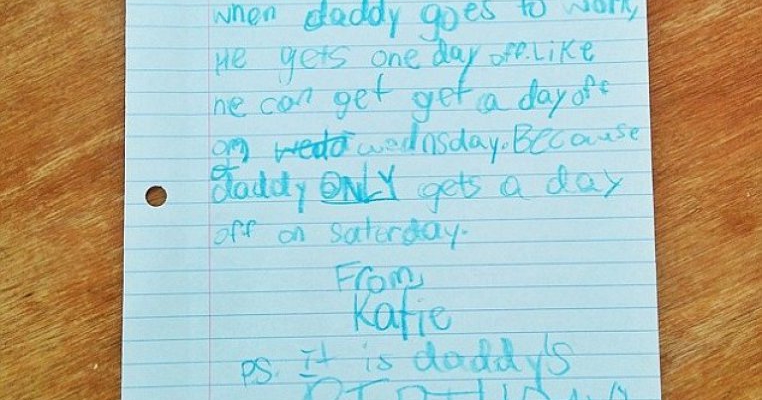 when daddy goes to work,
He gets one day off. Like
he can get get a day off
on wedo wednsday. Because
daddy ONLY gets a day
off on saterday.
From,
Katie
ps. It is daddy's